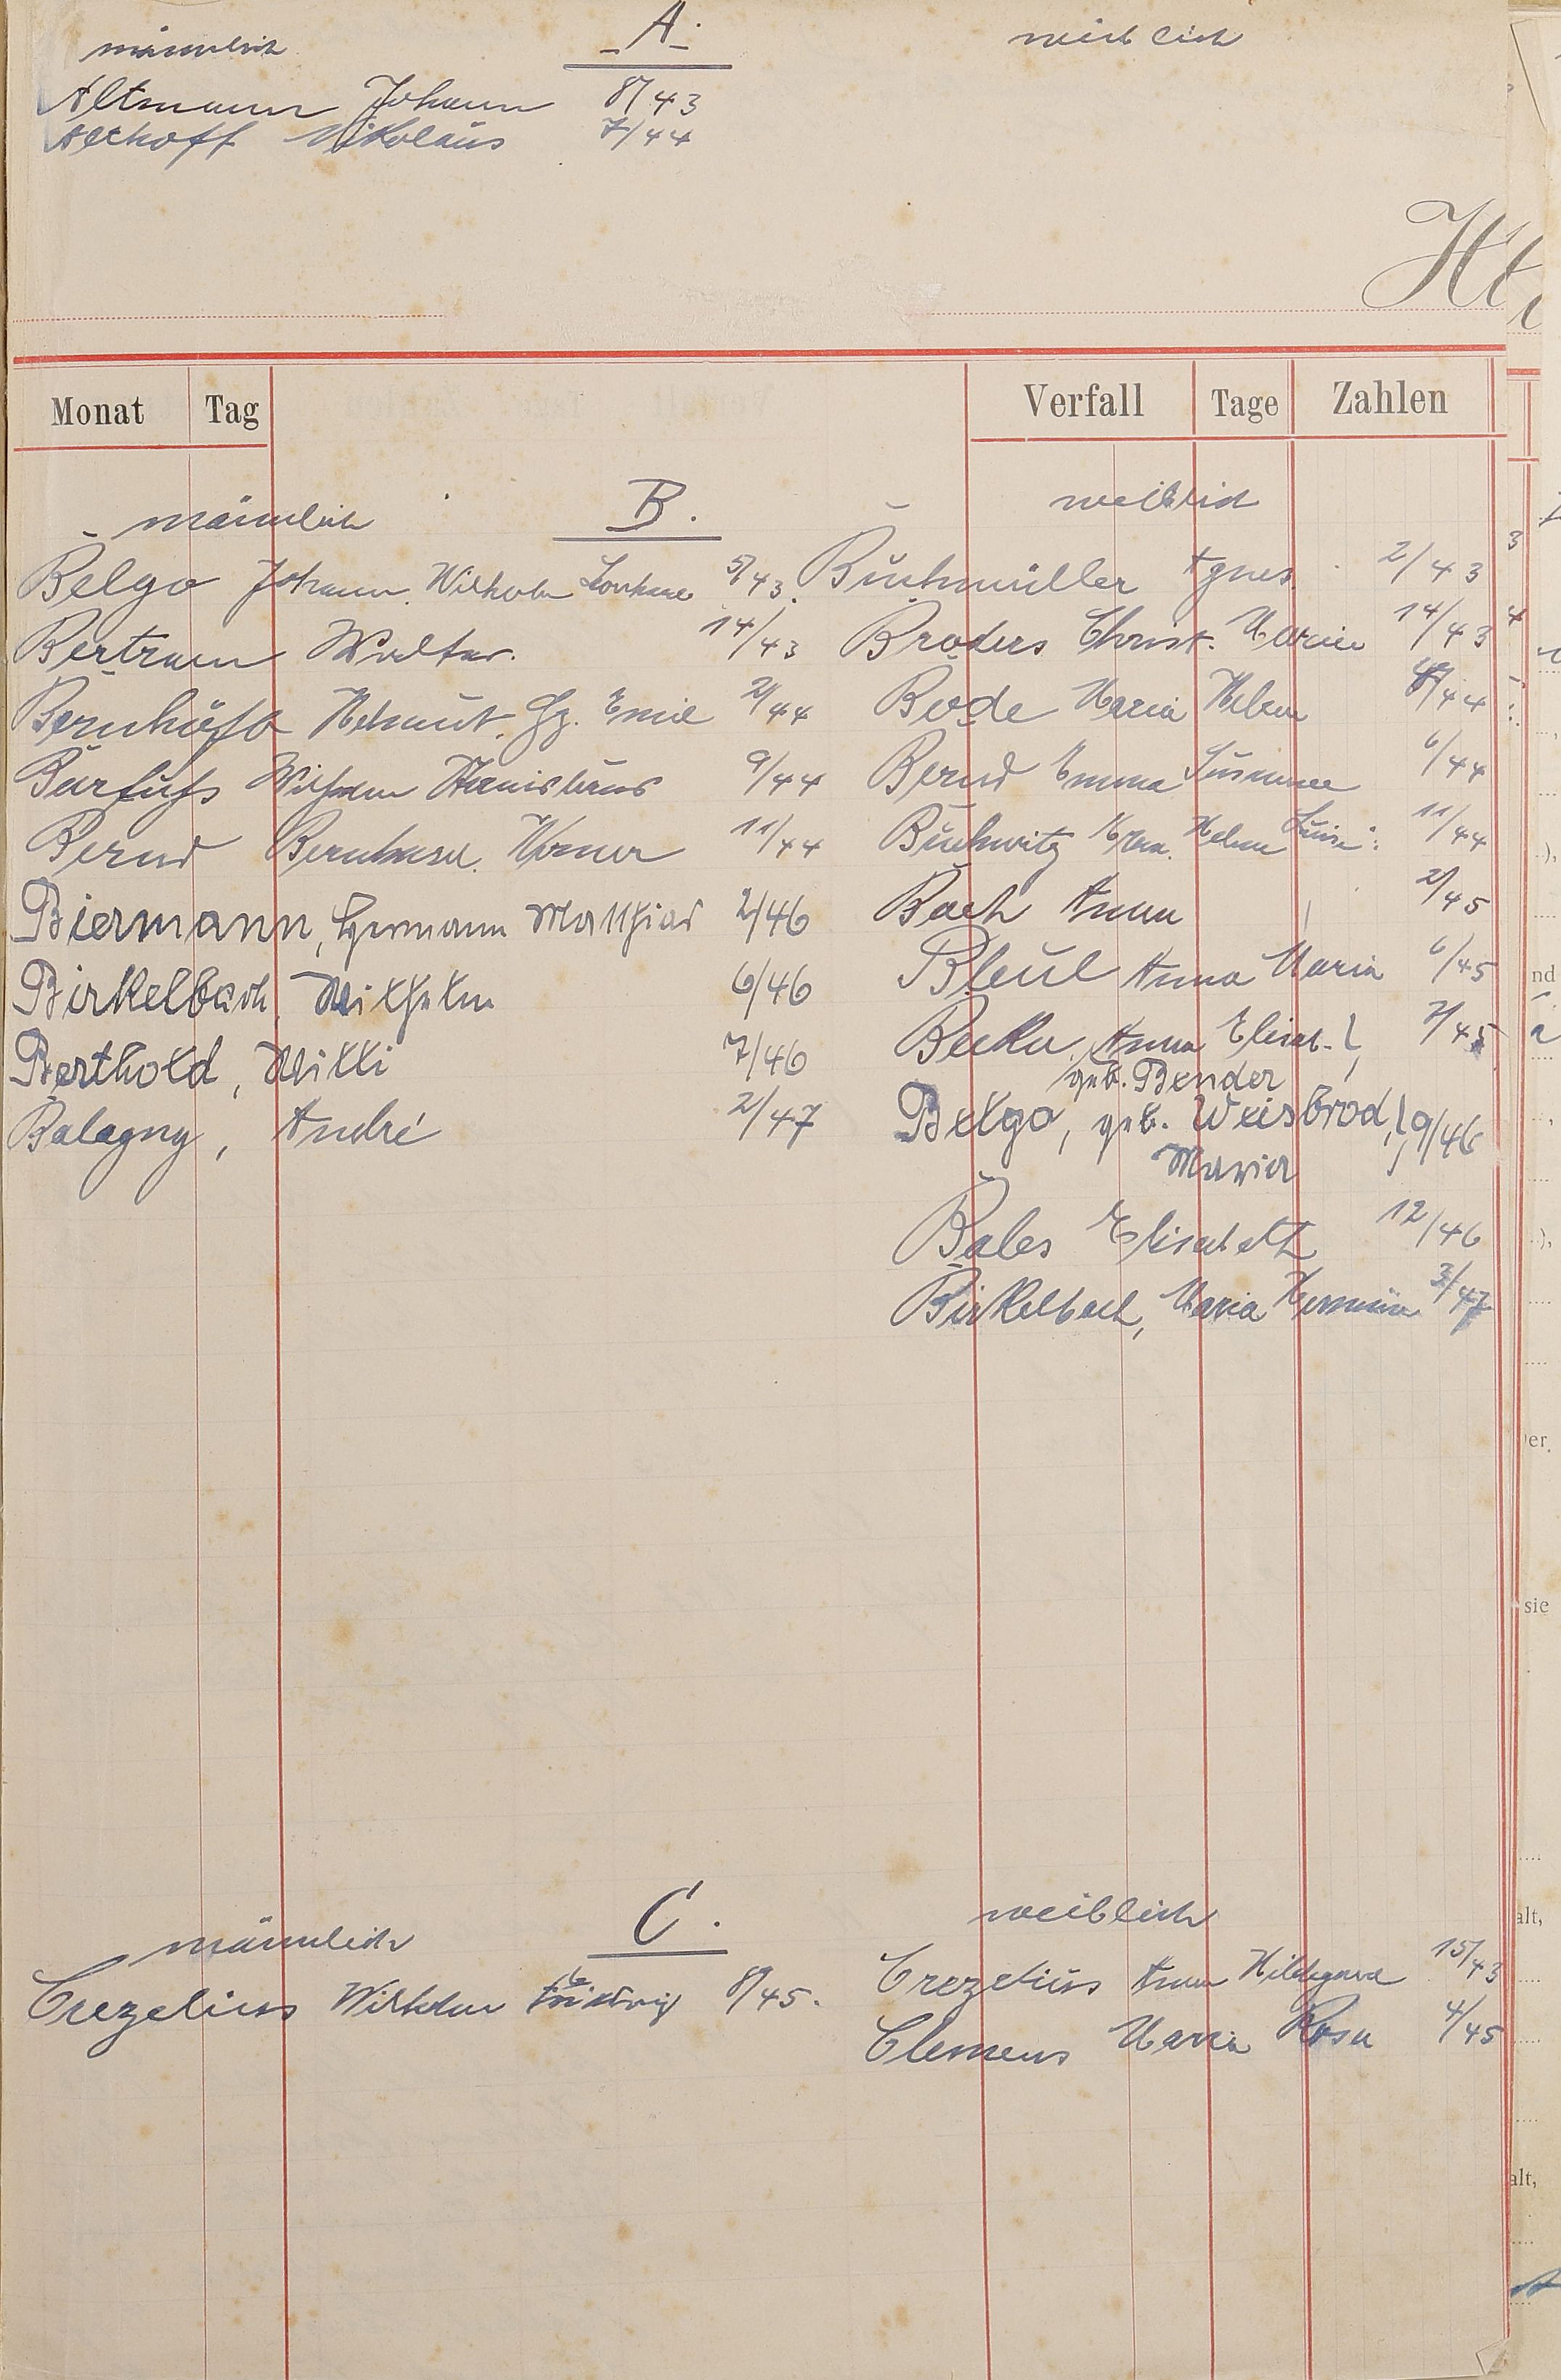 A.
männlich weiblich
Altmann Johann 8/43
Althoff Nikolaus 7/44
Monat Tag Verfall Tage Zahlen
B.
männlich weiblich
Belgo Johann Wilhelm 5/43 Buchmüller Agnes 2/43
Bertram Walter. 14/43 Broders Christ. Marie 14/43
Helmut Gg. Emil 2/44 Bode Maria Helene 4/44
Barfuß Wilhelm Stanislaus 9/44 Bernd Emma Susanne 6/44
Bernd Bernhard Werner 11/44 Buchwitz Helene Luise 11/44
Biermann, Hermann Matthias 2/46 Bach Anna 2/45
Birkelbach, Wilhelm 6/46 Bleul Anna Maria 6/45
Berthold, Willi 7/46 Becker, Anna Elisab. 7/45
geb. Bender
Balagny, André 2/47 Belgo, geb. Weisbrod, 9/46
Maria
Bales Elisabeth 12/46
Birkelbach, Maria Hermine 3/47
C.
männlich weiblich
Crezelius Wilhelm Ludwig 8/45. Crezelius Anna Hildegard 15/43
Clemens Maria Rosa 4/45